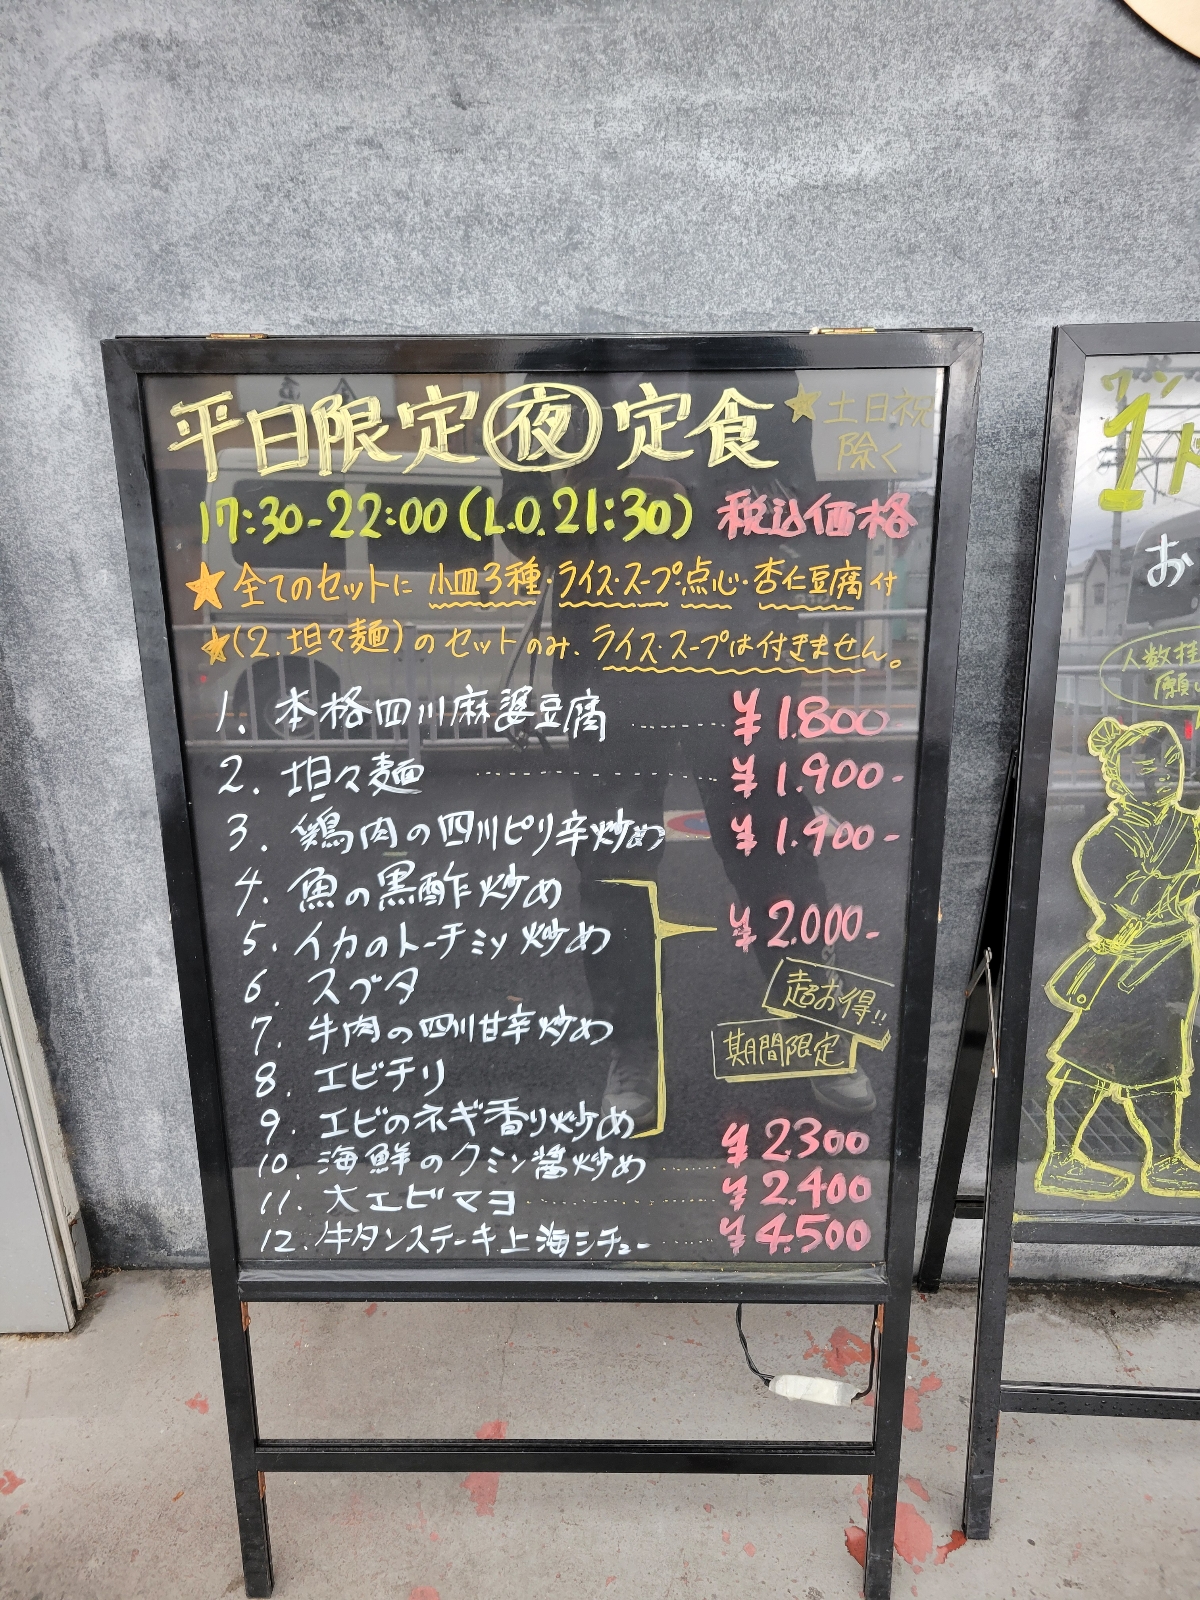 平日限定 夜 定食 ★土日祝
除く
17:30-22:00(L.O.21:30) 税込価格
★全てのセットに 小皿3種・ライス・スープ・点心・杏仁豆腐付
★(2.坦々麺)のセットのみ、ライス・スープは付きません。
1. 本格四川麻婆豆腐 ¥1.800
2. 坦々麺 ¥1.900-
3. 鶏肉の四川ピリ辛炒め ¥1.900-
4. 魚の黒酢炒め
5. イカのトーチミソ炒め ¥2.000-
6. スブタ
7. 牛肉の四川甘辛炒め
8. エビチリ
9. エビのネギ香り炒め
超お得!!
期間限定
10. 海鮮のクミン醤炒め ¥2300
11. 大エビマヨ ¥2.400
12. 牛タンステーキ上海シチュー ¥4.500
ワン
1ド
お
人数様
願い